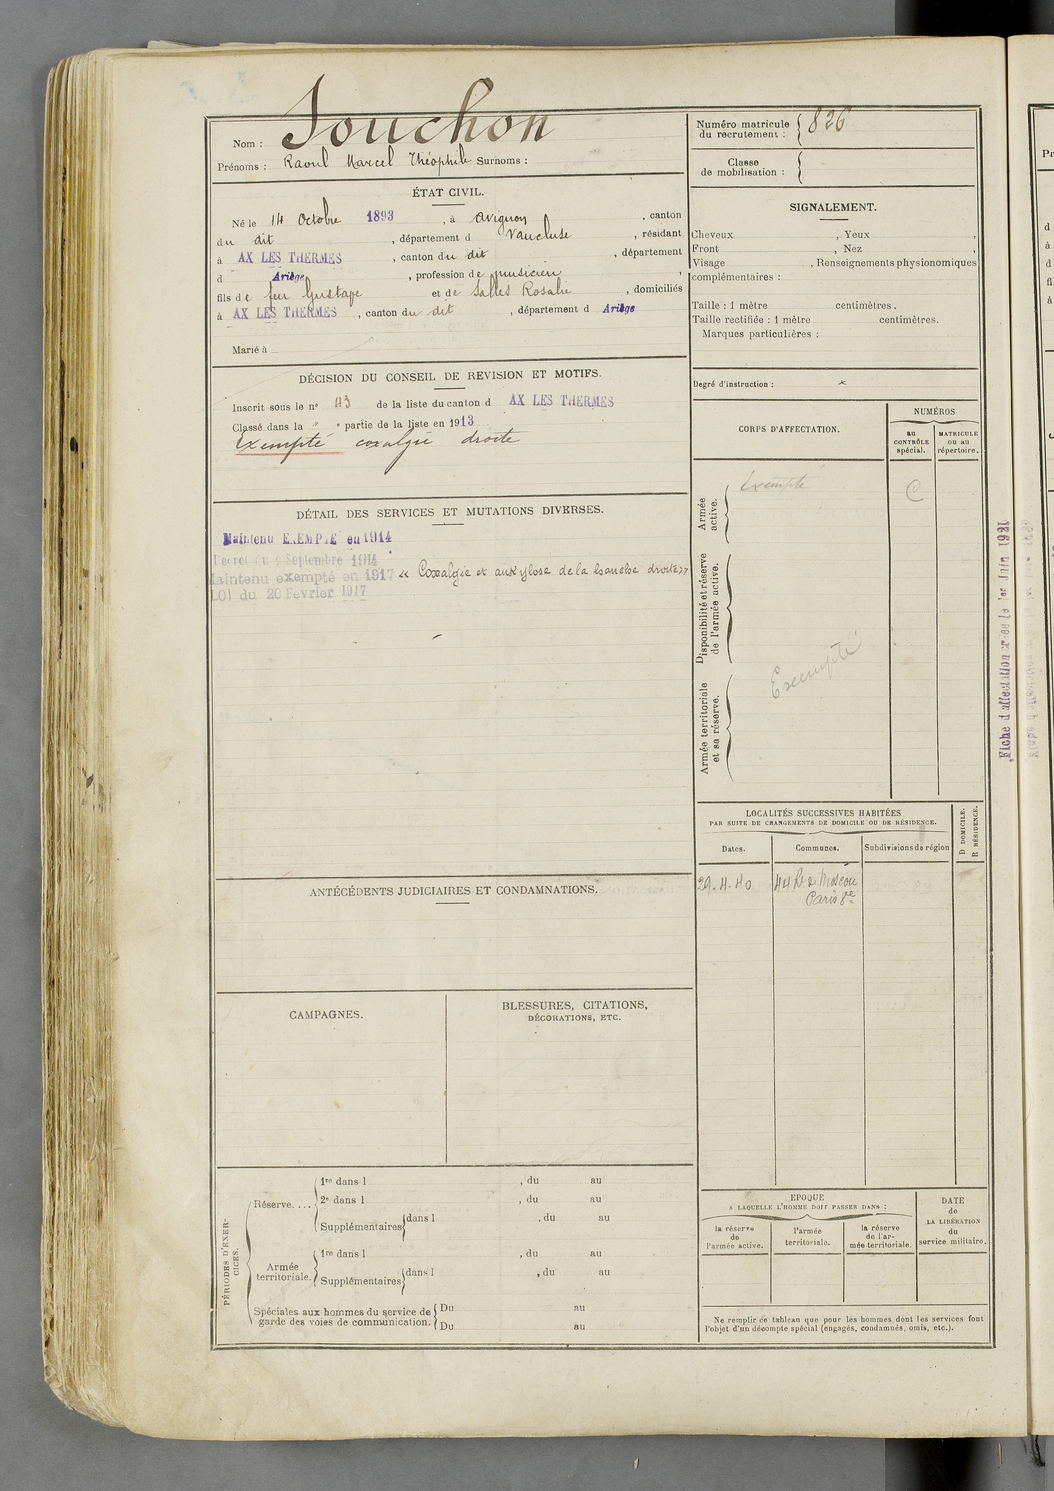 Nom : Souchon
Prénoms : Raoul Marcel Théophile Surnoms :
Numéro matricule du recrutement : 826
Classe de mobilisation :
ÉTAT CIVIL.
Né le 14 Octobre 1893, à Avignon, canton
du dit, département d Vaucluse, résidant
à AX LES THERMES, canton du dit, département
d Ariège, profession de musicien,
fils de feu Gustave et de Salles Rosalie, domiciliés
à AX LES THERMES, canton du dit, département d Ariège
Marié à
SIGNALEMENT.
Cheveux , Yeux ,
Front , Nez ,
Visage , Renseignements physionomiques
complémentaires :
Taille : 1 mètre centimètres.
Taille rectifiée : 1 mètre centimètres.
Marques particulières :
Degré d'instruction : x
DÉCISION DU CONSEIL DE REVISION ET MOTIFS.
Inscrit sous le n° de la liste du canton d AX LES THERMES
Classé dans la " partie de la liste en 1913
Exempté coxalgie droite
DÉTAIL DES SERVICES ET MUTATIONS DIVERSES.
Maintenu EXEMPTE en 1914
Décret du Septembre 1914
Maintenu exempté en 1917 « Coxalgie et ankylose de la hanche droite »
Loi du 20 Fevrier 1917
CORPS D'AFFECTATION.
NUMÉROS
au CONTRÔLE spécial.
MATRICULE ou au répertoire.
Armée active.
Exempté
C
Disponibilité et réserve de l'armée active.
Armée territoriale et sa réserve.
Exempté
Fiche d'affectation créée le 1er Juin 1921
LOCALITÉS SUCCESSIVES HABITÉES
PAR SUITE DE CHANGEMENTS DE DOMICILE OU DE RÉSIDENCE.
D DOMICILE.
R RÉSIDENCE.
Dates.
Communes.
Subdivisions de région
29-4-40
44 R. de Moscou
Paris 8e
ANTÉCÉDENTS JUDICIAIRES ET CONDAMNATIONS.
CAMPAGNES.
BLESSURES, CITATIONS,
DÉCORATIONS, ETC.
PÉRIODES D'EXERCICES.
Réserve....
1re dans l , du au
2e dans l , du au
Supplémentaires dans l , du au
Armée territoriale.
1re dans l , du au
Supplémentaires dans l , du au
Spéciales aux hommes du service de
garde des voies de communication.
Du au
Du au
EPOQUE
A LAQUELLE L'HOMME DOIT PASSER DANS :
la réserve de l'armée active.
l'armée territoriale.
la réserve de l'armée territoriale.
DATE
de
LA LIBÉRATION
du
service militaire.
Ne remplir ce tableau que pour les hommes dont les services font
l'objet d'un décompte spécial (engagés, condamnés, omis, etc.).